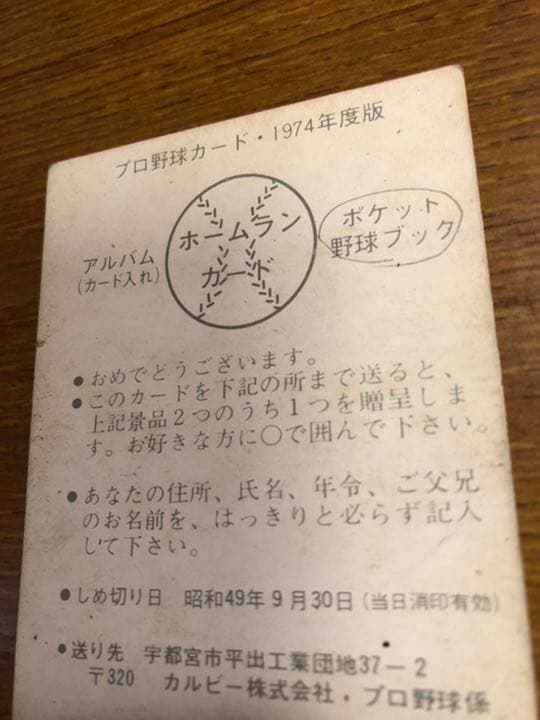 プロ野球カード・1974年度版
ホームラン
カード
アルバム
(カード入れ)
ポケット
野球ブック
●おめでとうございます。
●このカードを下記の所まで送ると、
上記景品2つのうち1つを贈呈しま
す。お好きな方に○で囲んで下さい。
●あなたの住所、氏名、年令、ご父兄
のお名前を、はっきりと必らず記入
して下さい。
●しめ切り日 昭和49年9月30日(当日消印有効)
●送り先 宇都宮市平出工業団地37-2
〒320 カルビー株式会社・プロ野球係